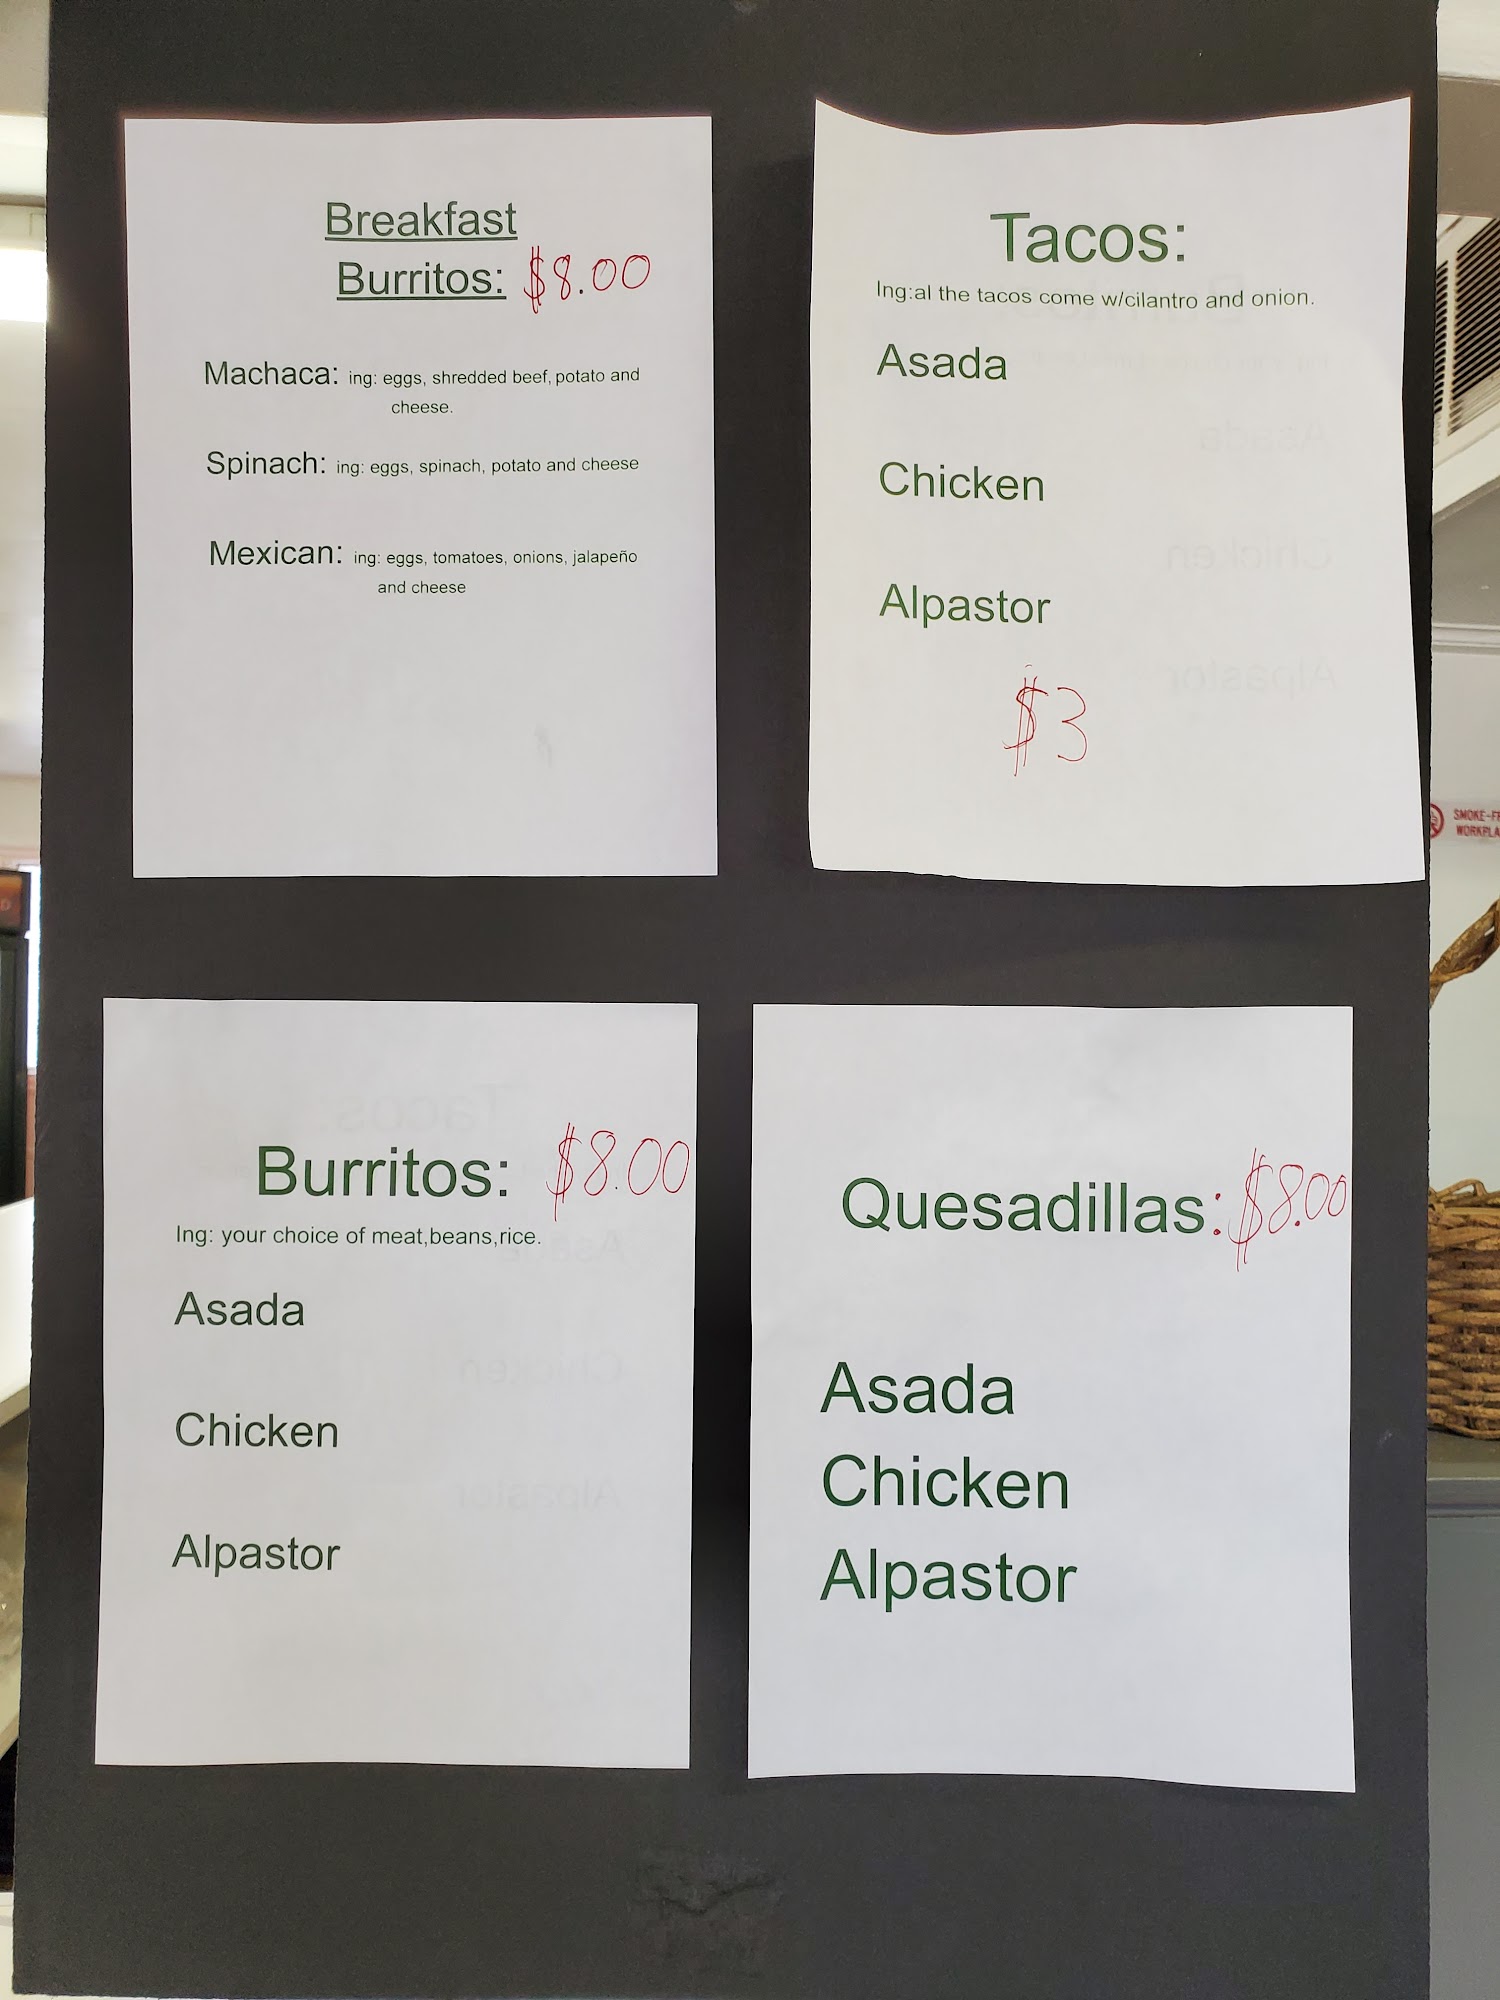 Breakfast
Burritos: $8.00
Machaca: ing: eggs, shredded beef, potato and
cheese.
Spinach: ing: eggs, spinach, potato and cheese
Mexican: ing: eggs, tomatoes, onions, jalapeño
and cheese
Tacos:
Ing:al the tacos come w/cilantro and onion.
Asada
Chicken
Alpastor
$3
Burritos: $8.00
Ing: your choice of meat,beans,rice.
Asada
Chicken
Alpastor
Quesadillas: $8.00
Asada
Chicken
Alpastor